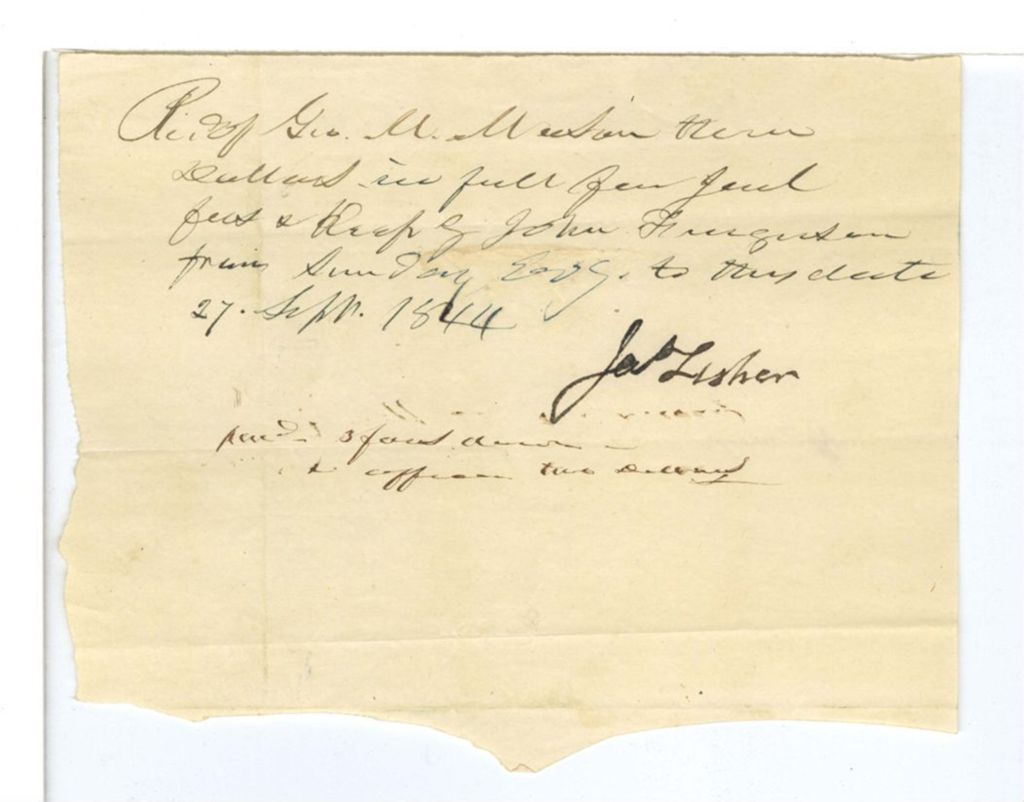 Rec.d of Geo. M. Meeson three
Dollars in full for Jail
fees & Keep'g John Furguson
from Sunday Evg. to this date
27. Sept. 1844
Jas Lesher
paid
& officer two dollars